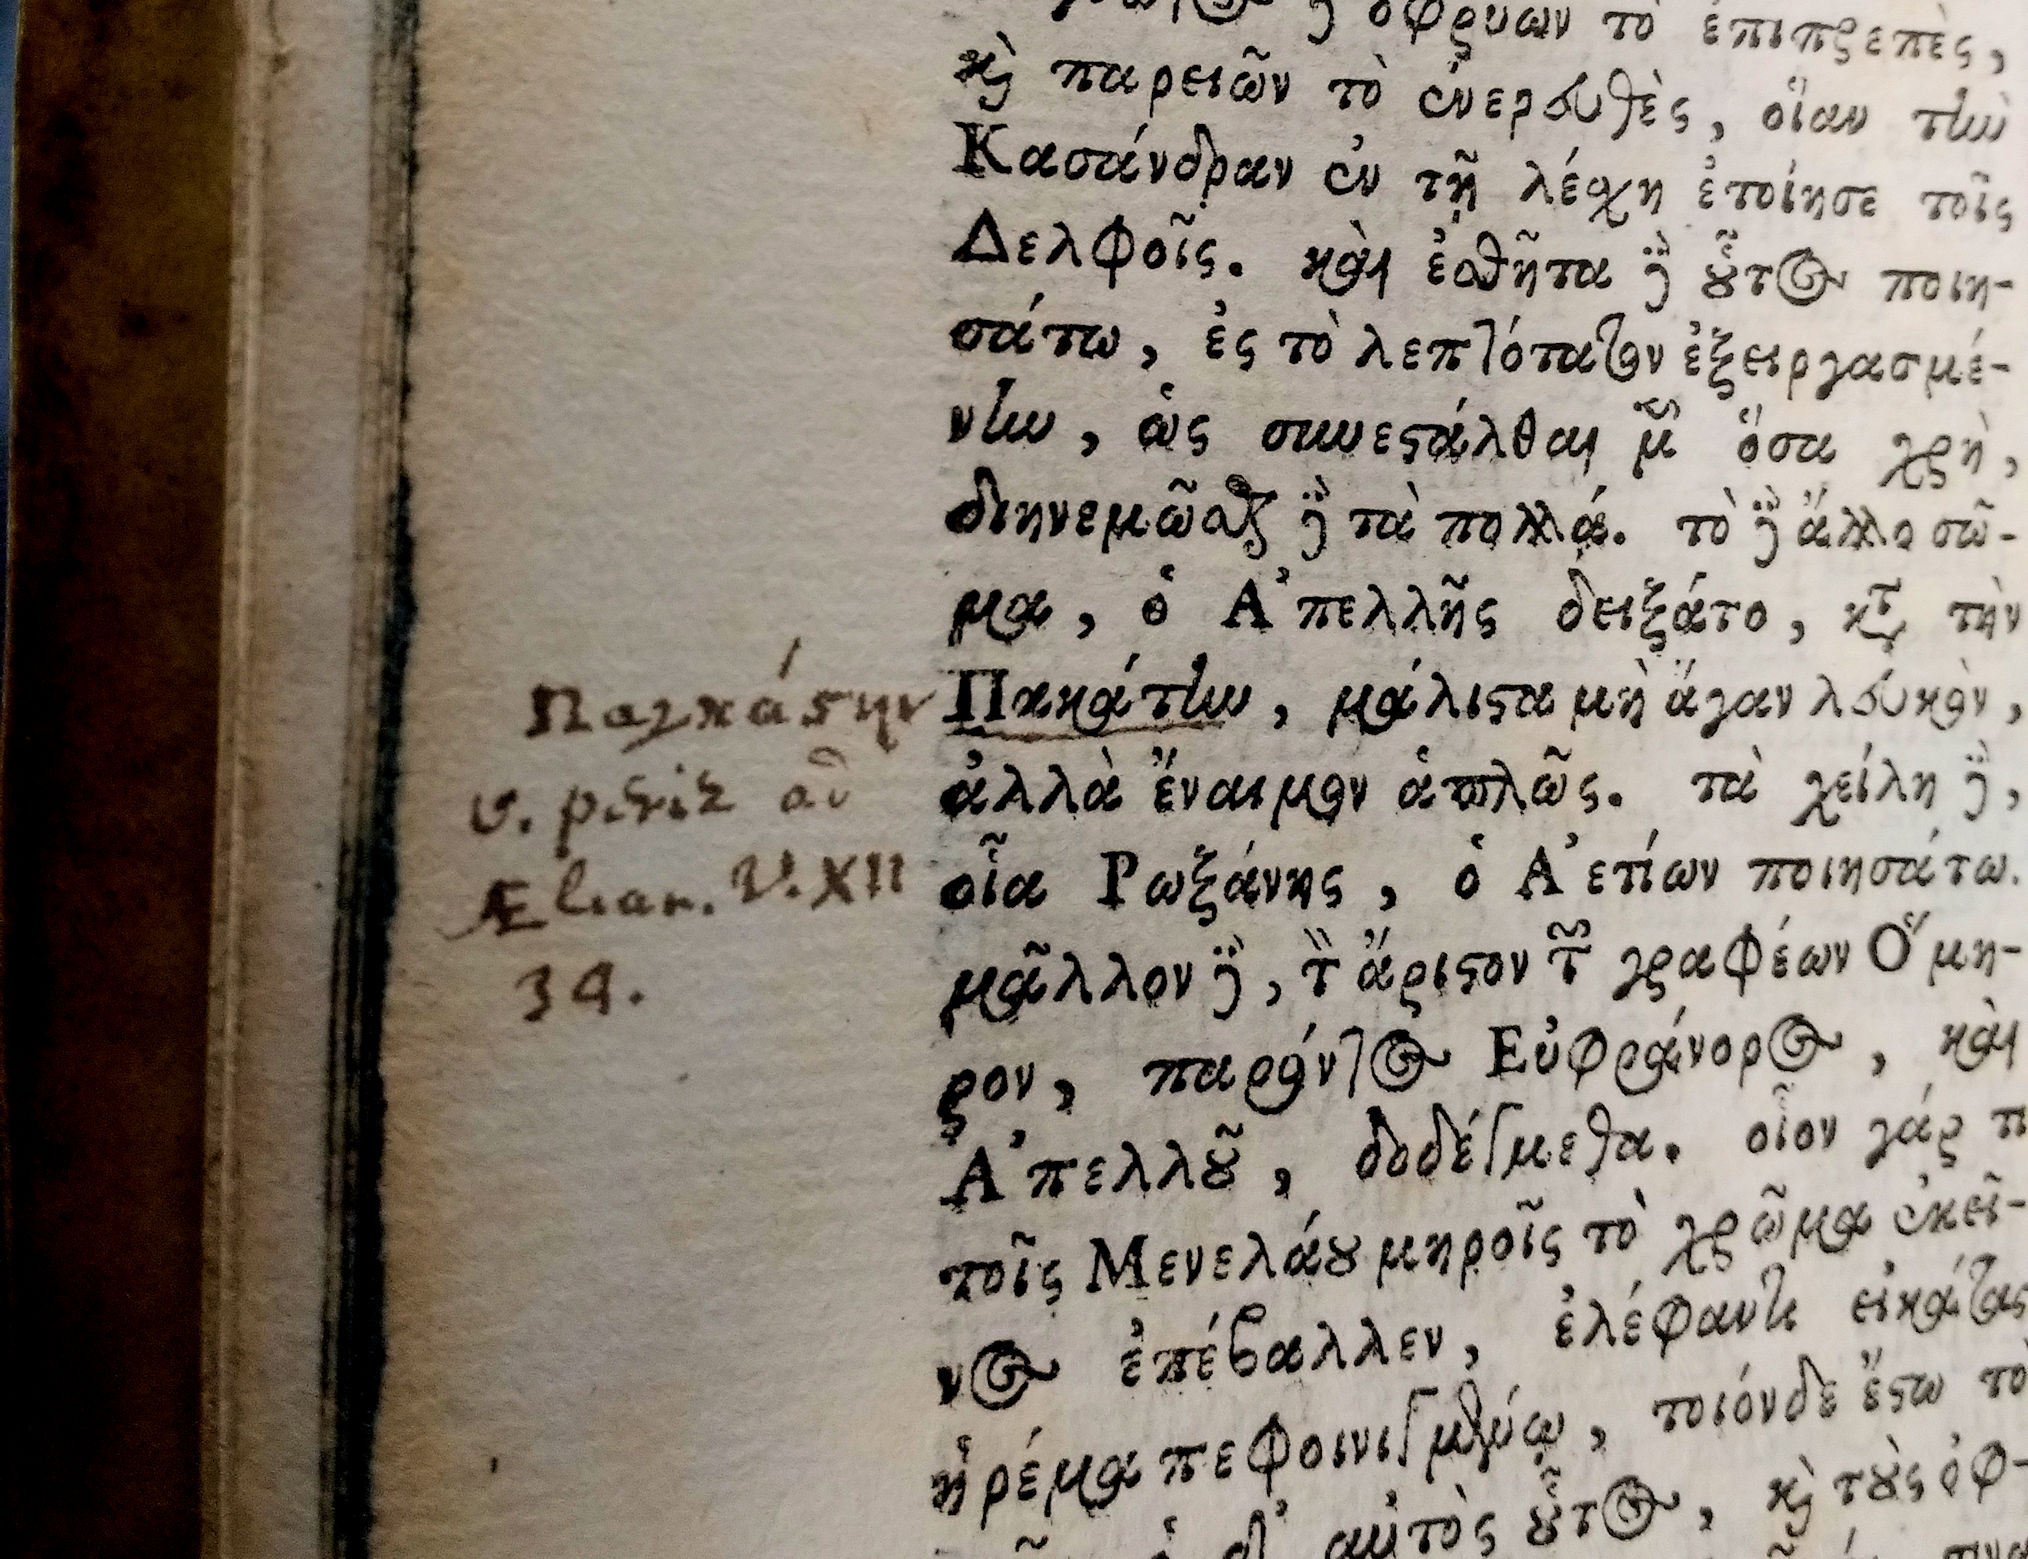 ὀφρύων τὸ ἐπιπρεπὲς,
κὶ παρειῶν τὸ ἐνερευθὲς, οἵαν τὴν
Κασάνδραν ἐν τῇ λέχῃ ἐποίησε τοῖς
Δελφοῖς. καὶ ἐσθῆτα ἢ οὗτος ποιη-
σάτω, ἐς τὸ λεπτότατον ἐξειργασμέ-
νην, ὡς συνεστάλθαι μὲν ὅσα χρὴ,
διηνεμῶσθαι δὲ τὰ πολλά. τὸ δὲ ἄλλο σῶ-
μα, ὁ Ἀπελλῆς δειξάτο, κατὰ τὴν
Παγκάστην Πακάτην, μάλιστα μὴ ἄγαν λευκὸν,
ἀλλὰ ἔναιμον ἁπλῶς. τὰ χείλη δὲ,
Ælian. V. XII οἷα Ῥωξάνης, ὁ Ἀετίων ποιησάτω.
34. μᾶλλον δὲ, τὸν ἄριστον τῶν γραφέων Ὅμη-
ρον, παρόντος Εὐφράνορος, καὶ
Ἀπελλοῦ, δεδέγμεθα. οἷον γάρ τι
τοῖς Μενελάου μηροῖς τὸ χρῶμα ἐκεῖ-
νος ἐπέβαλλεν, ἐλέφαντι εἰκάσας
ἠρέμα πεφοινιγμένῳ, τοιόνδε ἔστω τὸ
αὐτὸς οὗτος, κὶ τοὺς ὀφ-